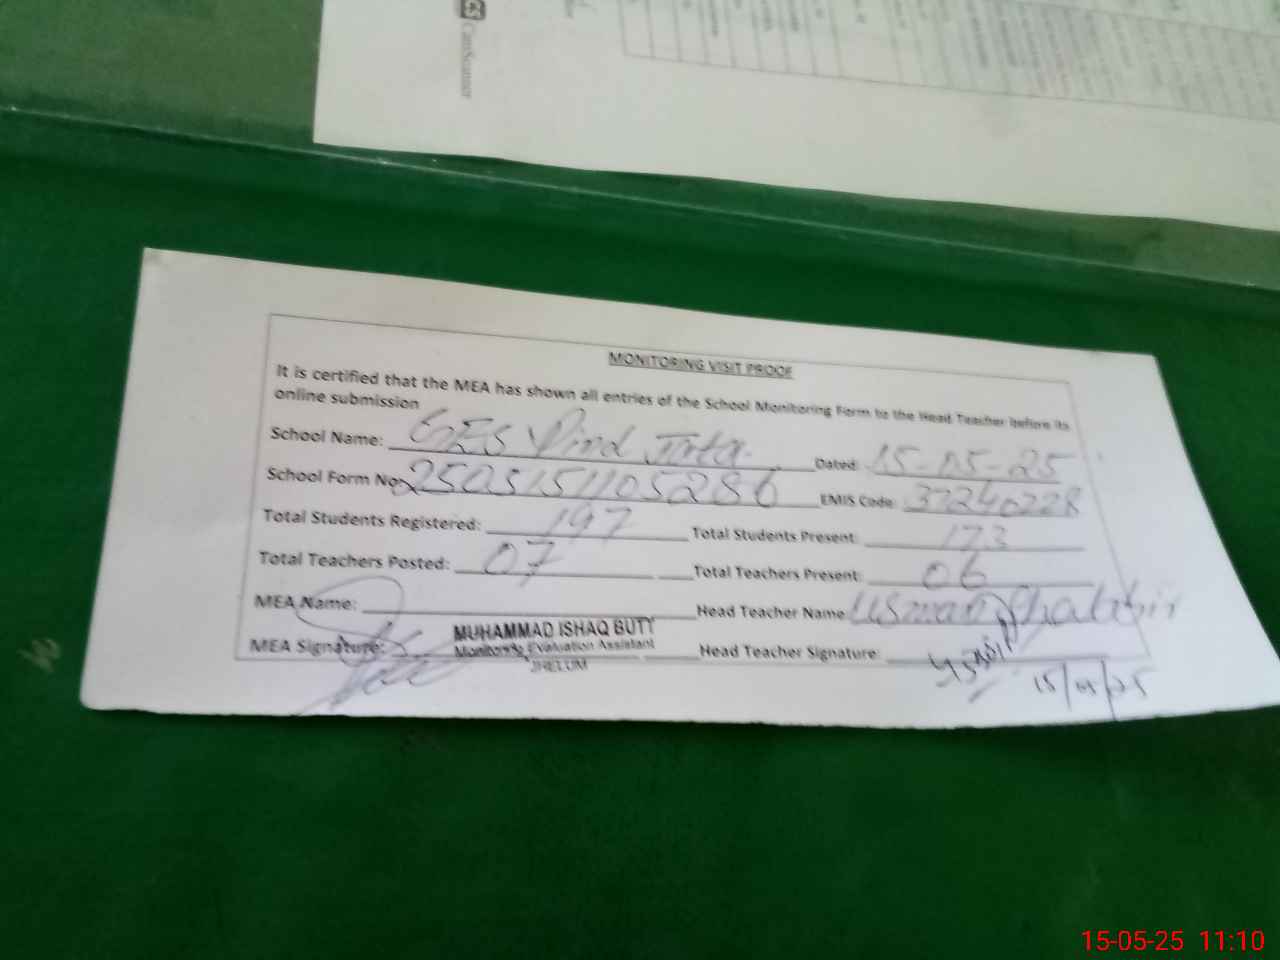 CamScanner
MONITORING VISIT PROOF
It is certified that the MEA has shown all entries of the School Monitoring Form to the Head Teacher before its
online submission
School Name: GES Pind Dated: 15-05-25
School Form No: 2505151105286 EMIS Code: 37240228
Total Students Registered: 197 Total Students Present: 173
Total Teachers Posted: 07 Total Teachers Present: 06
MEA Name: Head Teacher Name Usman Shabbir
MUHAMMAD ISHAQ BUTT
MEA Signature: Monitoring Evaluation Assistant Head Teacher Signature:
JHELUM
15/05/25
15-05-25 11:10